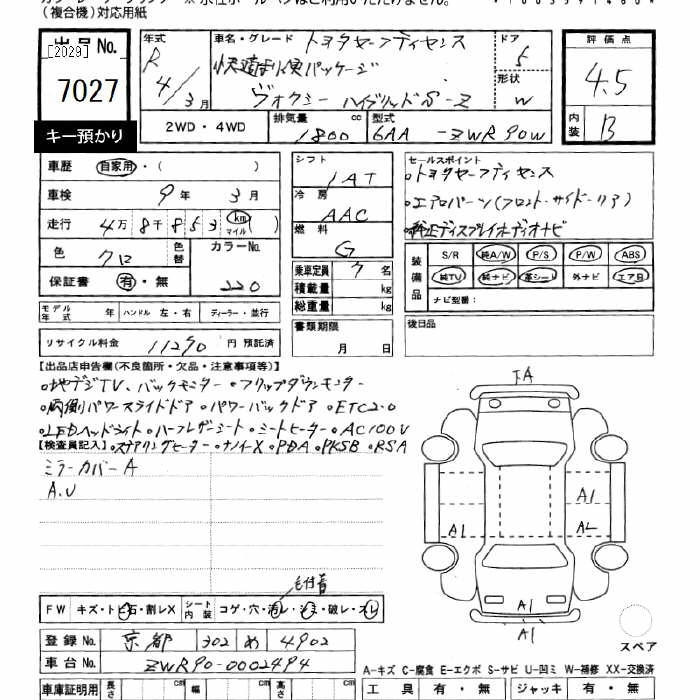 (複合機)対応用紙
出品No.
[2029]
7027
キー預かり
年式 R 4/3月
車名・グレード トヨタセーフティセンス
快適利便パッケージ
ヴォクシー ハイブリッドS-Z
ドア 5
形状 W
評価点 4.5
内装 B
2WD・4WD
排気量 1800 cc
型式 6AA - ZWR90W
車歴 自家用・( )
車検 9年 3月
走行 4万8千853 km マイル ( )
色 クロ 色替 カラーNo. 220
保証書 有・無
シフト IAT
冷房 AAC
燃料 G
乗車定員 7 名
積載量 kg
総重量 kg
書類期限 月 日
セールスポイント
・トヨタセーフティセンス
・エアロバーン(フロント・サイド・リア)
・純正ディスプレイオーディオナビ
装備品 S/R 純A/W P/S P/W ABS
純TV 純ナビ 革シート 外ナビ エアB
ナビ型番:
後日品
モデル年式 年 ハンドル 左・右 ディーラー・並行
リサイクル料金 11290 円 預託済
【出品店申告欄(不良箇所・欠品・注意事項等)】
・地デジTV、バックモニター ・フリップダウンモニター
・両側パワースライドドア ・パワーバックドア ・ETC2.0
・LEDヘッドライト ・ハーフレザーシート ・シートヒーター ・AC100V
【検査員記入】・ステアリングヒーター ・ナノイーX ・PDA ・PKSB ・RSA
ミラーカバーA
A.U
TA
A1
A1
AL
A1
A1
FW キズ・トビ石・割レX シート内装 コゲ・穴・汚レ・シミ・破レ・スレ
登録No. 京都 302 め 4902
車台No. ZWR90-0002494
スペア
A-キズ C-腐食 E-エクボ S-サビ U-凹ミ W-補修 XX-交換済
車庫証明用 長さ cm 幅 cm 高さ cm
工具 有・無 ジャッキ 有・無